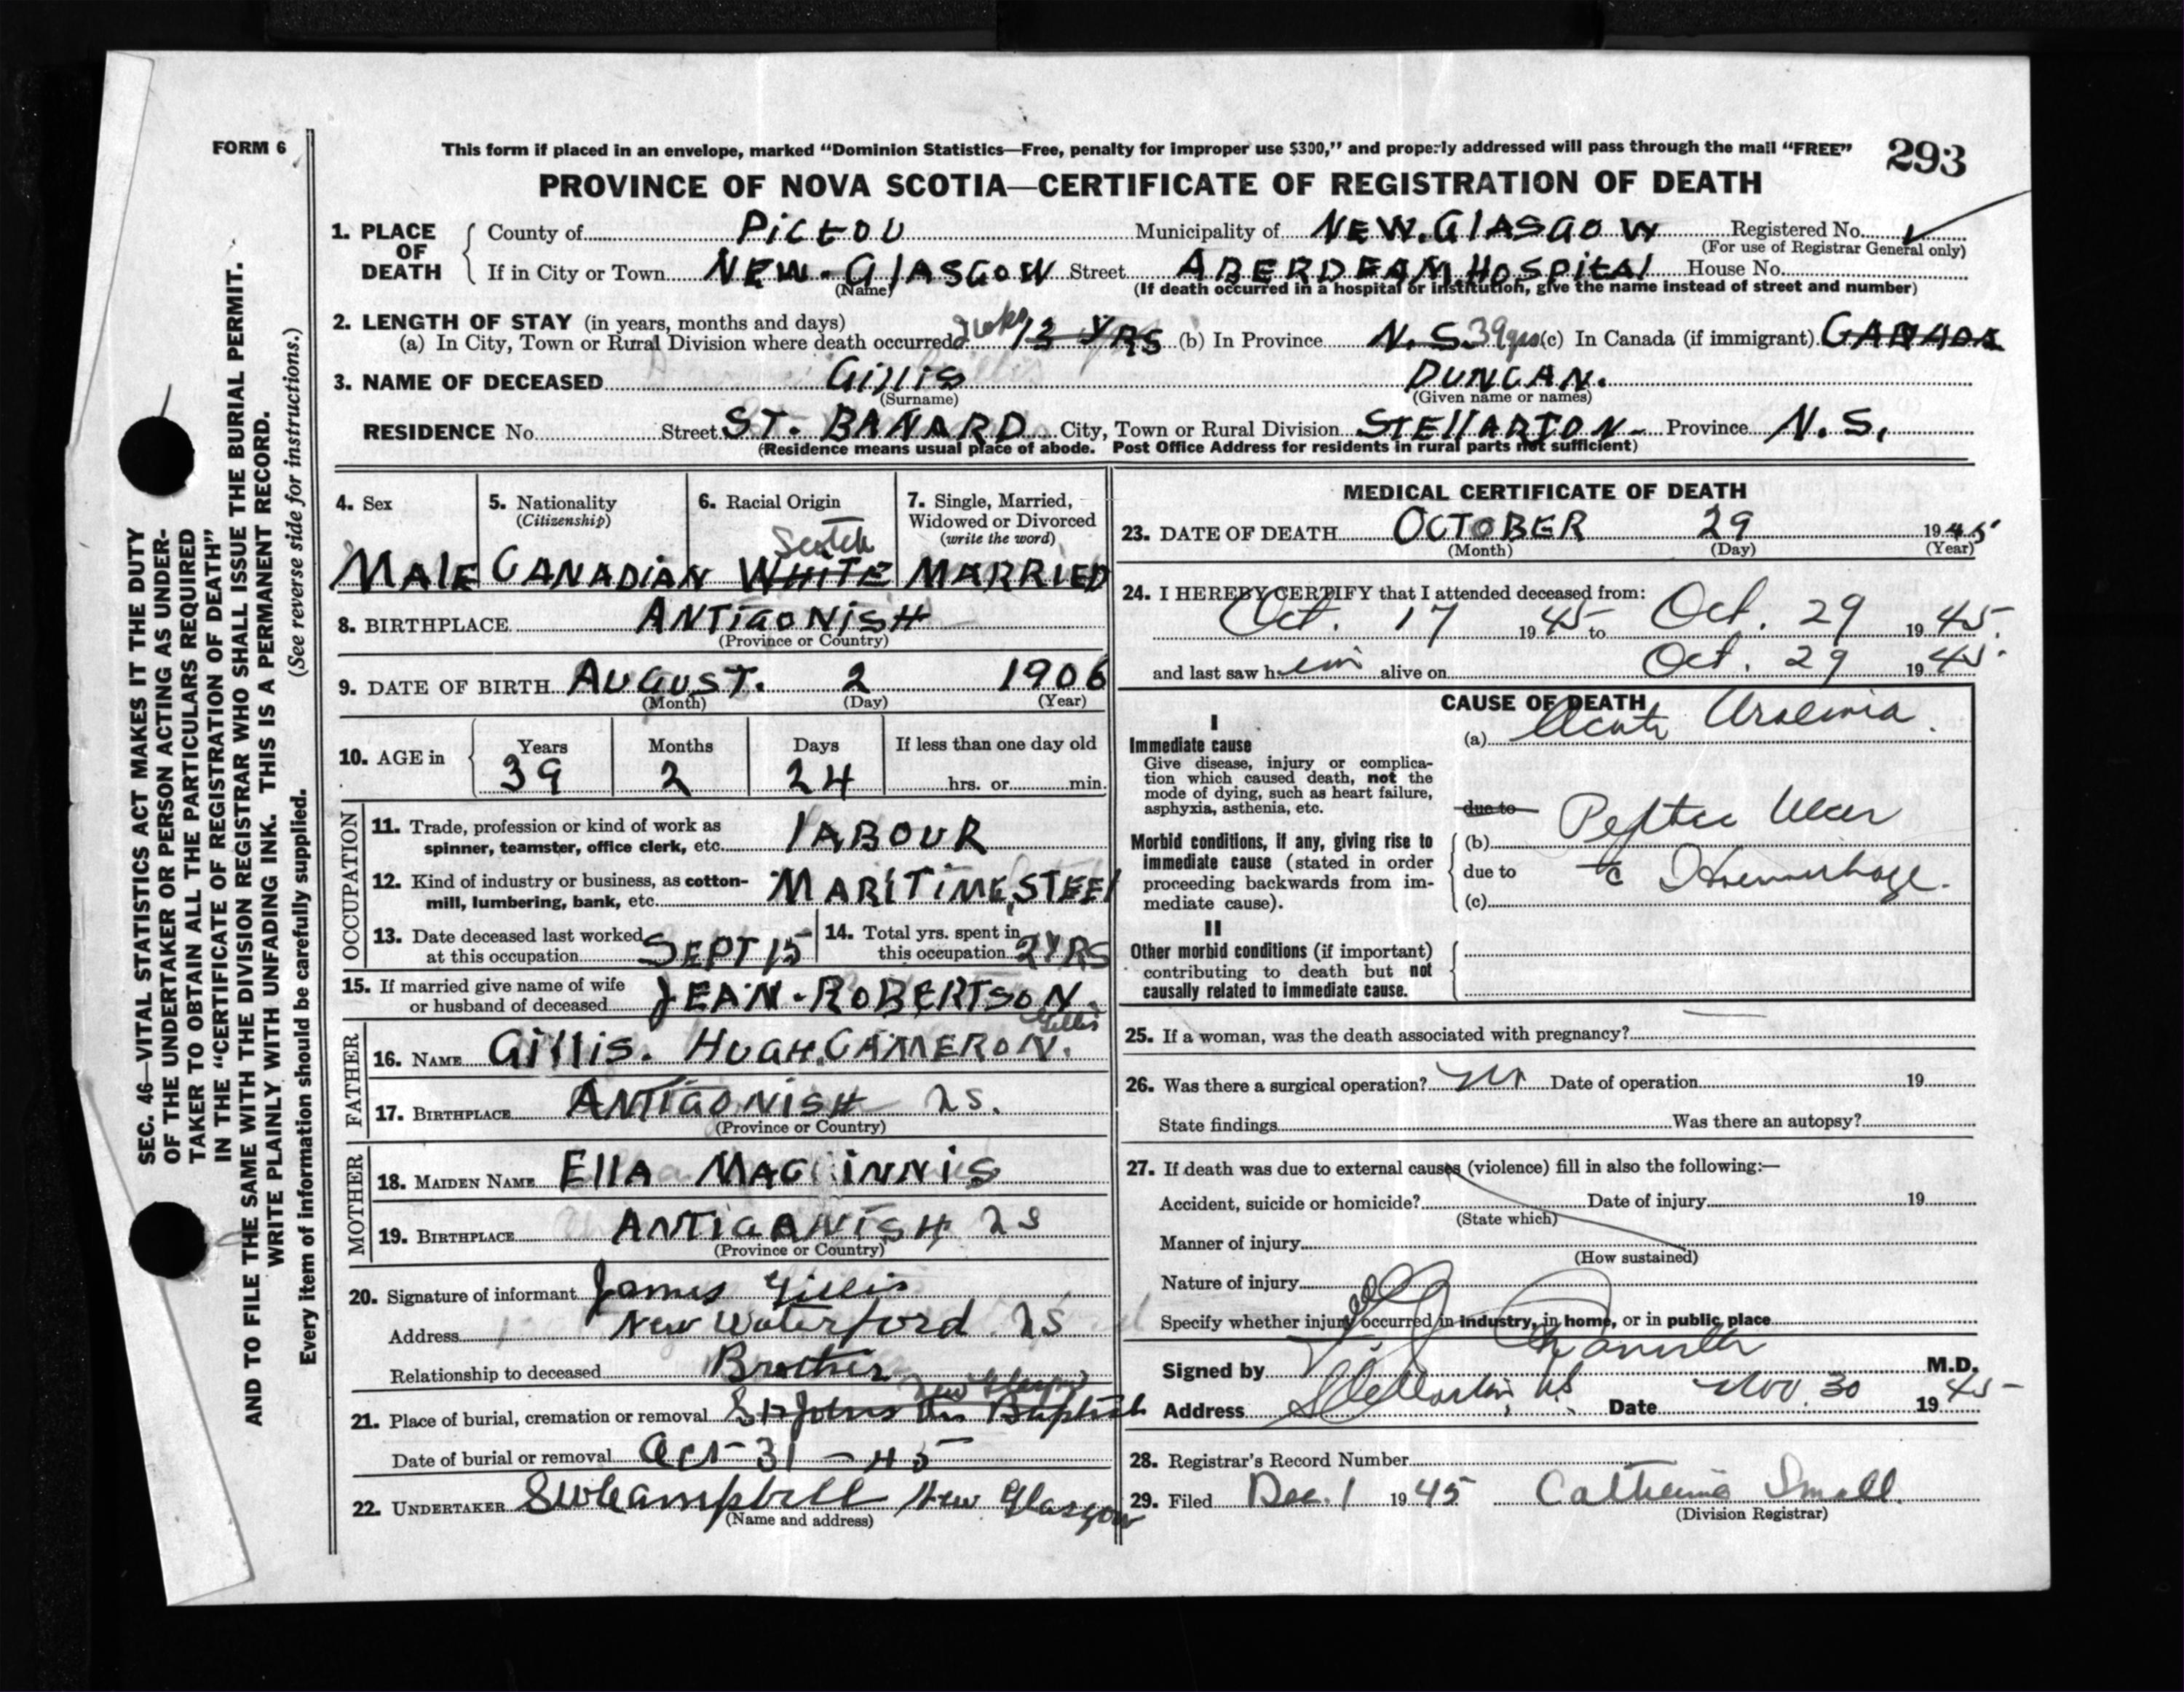 FORM 6
This form if placed in an envelope, marked "Dominion Statistics—Free, penalty for improper use $300," and properly addressed will pass through the mail "FREE"
293
PROVINCE OF NOVA SCOTIA—CERTIFICATE OF REGISTRATION OF DEATH
SEC. 46—VITAL STATISTICS ACT MAKES IT THE DUTY
OF THE UNDERTAKER OR PERSON ACTING AS UNDER-
TAKER TO OBTAIN ALL THE PARTICULARS REQUIRED
IN THE "CERTIFICATE OF REGISTRATION OF DEATH"
AND TO FILE THE SAME WITH THE DIVISION REGISTRAR WHO SHALL ISSUE THE BURIAL PERMIT.
WRITE PLAINLY WITH UNFADING INK. THIS IS A PERMANENT RECORD.
Every item of information should be carefully supplied. (See reverse side for instructions.)
1. PLACE OF DEATH
County of PICTOU Municipality of NEW.GLASGOW Registered No.
(For use of Registrar General only)
If in City or Town NEW-GLASGOW Street ABERDEAM HOSPITAL House No.
(Name) (If death occurred in a hospital or institution, give the name instead of street and number)
2. LENGTH OF STAY (in years, months and days)
(a) In City, Town or Rural Division where death occurred 13 YRS (b) In Province N.S. 39yrs (c) In Canada (if immigrant) CANADA
3. NAME OF DECEASED GILLIS DUNCAN.
(Surname) (Given name or names)
RESIDENCE No. Street ST. BANARD City, Town or Rural Division STELLARTON- Province N.S.
(Residence means usual place of abode. Post Office Address for residents in rural parts not sufficient)
4. Sex
MALE
5. Nationality
(Citizenship)
CANADIAN
6. Racial Origin
Scotch
WHITE
7. Single, Married,
Widowed or Divorced
(write the word)
MARRIED
8. BIRTHPLACE ANTIGONISH
(Province or Country)
9. DATE OF BIRTH AUGUST. 2 1906
(Month) (Day) (Year)
10. AGE in
Years Months Days If less than one day old
39 2 24 hrs. or min.
OCCUPATION
11. Trade, profession or kind of work as
spinner, teamster, office clerk, etc. LABOUR
12. Kind of industry or business, as cotton-
mill, lumbering, bank, etc. MARITIME, STEEL
13. Date deceased last worked
at this occupation SEPT 15
14. Total yrs. spent in
this occupation 2 YRS
15. If married give name of wife
or husband of deceased JEAN-ROBERTSON.
Gillis
FATHER
16. NAME GILLIS. HUGH.CAMERON.
17. BIRTHPLACE ANTIGONISH NS.
(Province or Country)
MOTHER
18. MAIDEN NAME ELLA MAC INNIS
19. BIRTHPLACE ANTIGONISH NS
(Province or Country)
20. Signature of informant James Gillis
Address New Waterford NS
Relationship to deceased Brother
New Glasgow
21. Place of burial, cremation or removal St Johns the Baptist
Date of burial or removal Oct-31-45
22. UNDERTAKER SW Campbell New Glasgow
(Name and address)
MEDICAL CERTIFICATE OF DEATH
23. DATE OF DEATH OCTOBER 29 1945
(Month) (Day) (Year)
24. I HEREBY CERTIFY that I attended deceased from:
Oct. 17 1945 to Oct. 29 1945.
and last saw him alive on Oct. 29 1945.
CAUSE OF DEATH
I
Immediate cause
Give disease, injury or complica-
tion which caused death, not the
mode of dying, such as heart failure,
asphyxia, asthenia, etc.
(a) Acute
due to
Morbid conditions, if any, giving rise to
immediate cause (stated in order
proceeding backwards from im-
mediate cause).
(b) Peptic Ulcer
due to c Haemorrhage.
(c)
II
Other morbid conditions (if important)
contributing to death but not
causally related to immediate cause.
25. If a woman, was the death associated with pregnancy?
26. Was there a surgical operation? no Date of operation 19
State findings Was there an autopsy?
27. If death was due to external causes (violence) fill in also the following:—
Accident, suicide or homicide? Date of injury 19
(State which)
Manner of injury
(How sustained)
Nature of injury
Specify whether injury occurred in industry, in home, or in public place
Signed by M.D.
Address Stellarton, NS Date Nov. 30 1945
28. Registrar's Record Number
29. Filed Dec. 1 1945 Catherine Small
(Division Registrar)